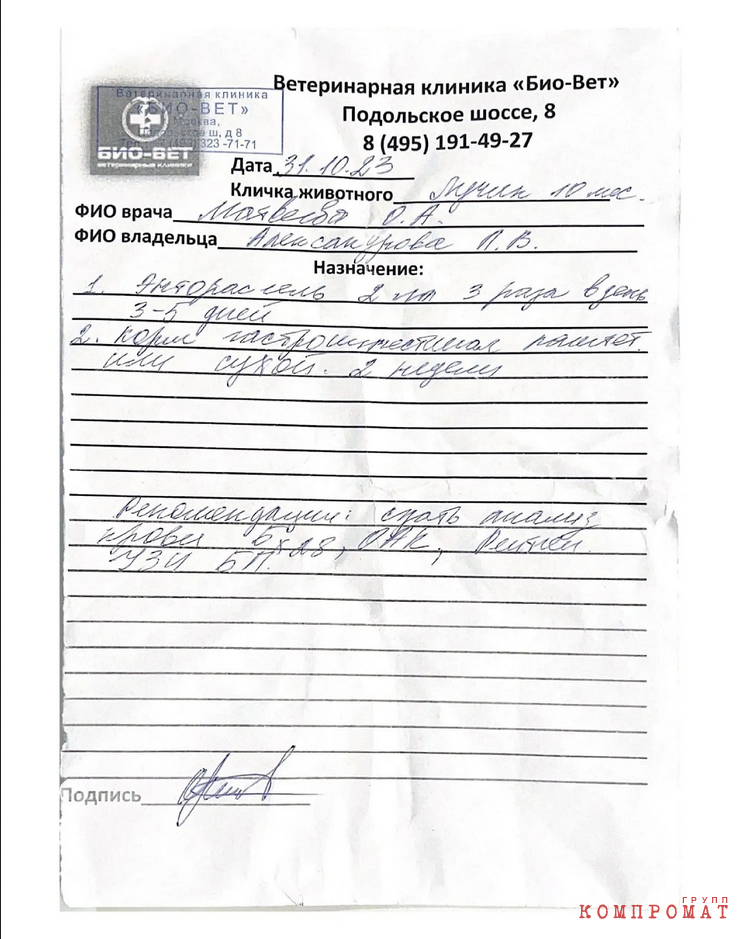 Ветеринарная клиника «Био-Вет»
Подольское шоссе, 8
8 (495) 191-49-27
Ветеринарная клиника
«БИО-ВЕТ»
Москва,
ш, д 8
323 -71-71
БИО-ВЕТ
ветеринарные клиники
Дата 31.10.23
Кличка животного 10 мес.
ФИО врача Матвеева О.А.
ФИО владельца Александрова П.В.
Назначение:
1. Энторосгель 2 мл 3 раза в день
3-5 дней
2. Корм гастроинтестинал паштет
или сухой. 2 недели
Рекомендации: сдать анализ
крови Бх 28, ОАК,
УЗИ БП.
Подпись
ГРУПП
КОМПРОМАТ